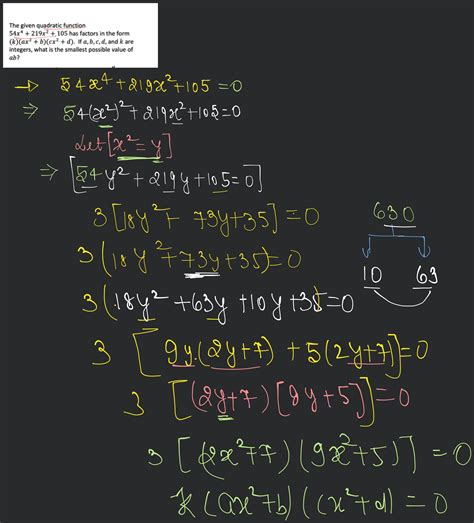 The given quadratic function
54x⁴ + 219x² + 105 has factors in the form
(k)(ax² + b)(cx² + d). If a, b, c, d, and k are
integers, what is the smallest possible value of
ab?
→ 54x⁴ + 219x² + 105 = 0
⇒ 54(x²)² + 219x² + 105 = 0
Let [x² = y]
⇒ [54y² + 219y + 105 = 0]
3[18y² + 73y + 35] = 0
630
3(18y² + 73y + 35) = 0
10 63
3(18y² + 63y + 10y + 35 = 0
3 [9y(2y+7) + 5(2y+7)] = 0
3 [(2y+7)[9y+5)] = 0
3 [(2x²+7)(9x²+5)] = 0
k(ax²+b)(cx²+d) = 0